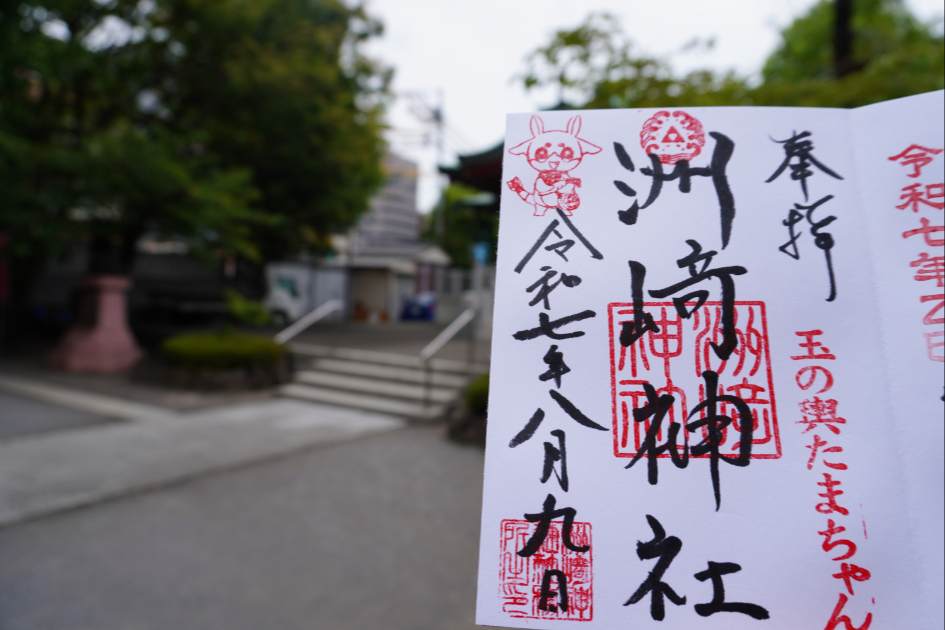 令和七年乙巳
奉拝
玉の輿たまちゃん
洲崎神社
洲崎神社
令和七年八月九日